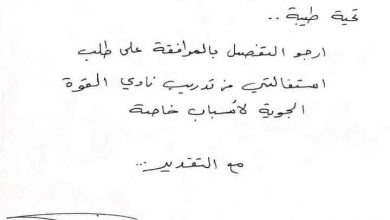 تحية طيبة ..
ارجو التفضل بالموافقة على طلب
استقالتي من تدريب نادي القوة
الجوية لأسباب خاصة
مع التقدير ...